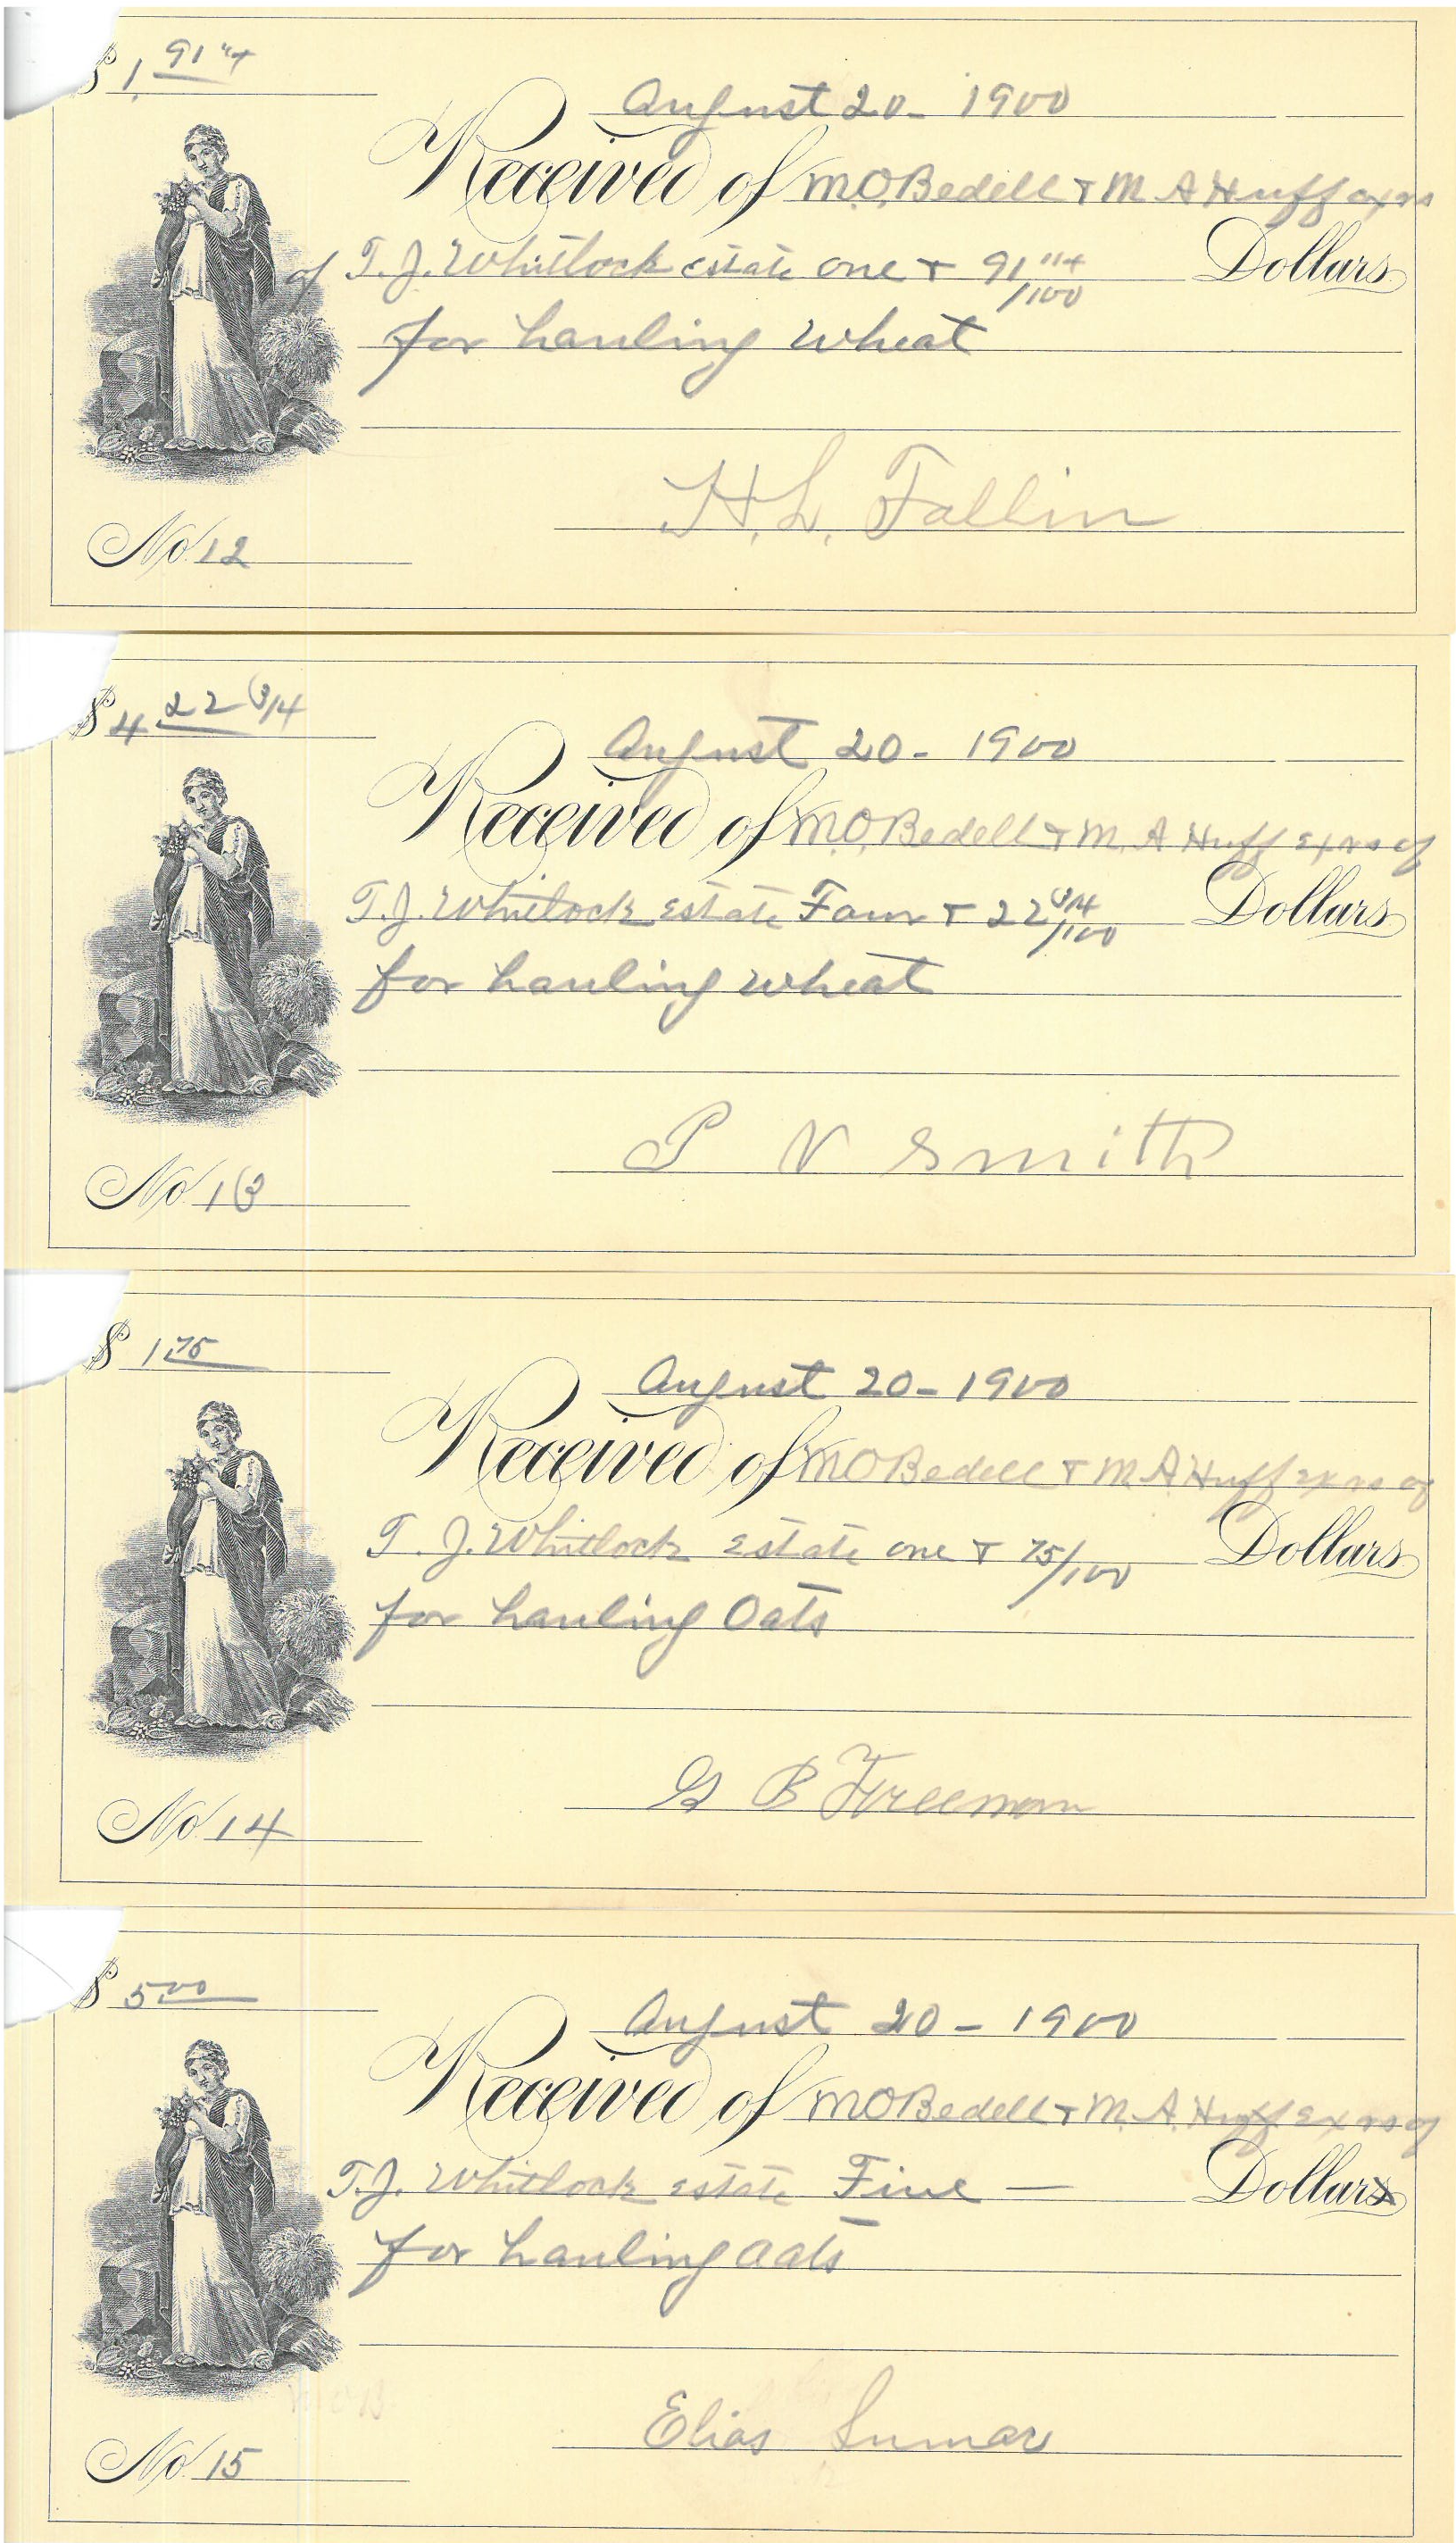 $ 1, 91 1/4
August 20 - 1900
Received of M.O. Bedell + M A Huff exrs
of T. J. Whitlock estate one + 91 1/4/100 Dollars
for hauling wheat
H. L. Fallin
No. 12
$ 4 22 3/4
August 20 - 1900
Received of M.O. Bedell + M. A Huff exrs of
T. J. Whitlock estate Four + 22 3/4/100 Dollars
for hauling wheat
P V Smith
No. 13
$ 1 75
August 20 - 1900
Received of M O Bedell + M. A Huff exrs of
T. J. Whitlock estate one + 75/100 Dollars
for hauling Oats
G B Freeman
No. 14
$ 5 00
August 20 - 1900
Received of M O Bedell + M. A. Huff exrs of
T. J. Whitlock estate Five — Dollars
for hauling oats
Elias
No. 15